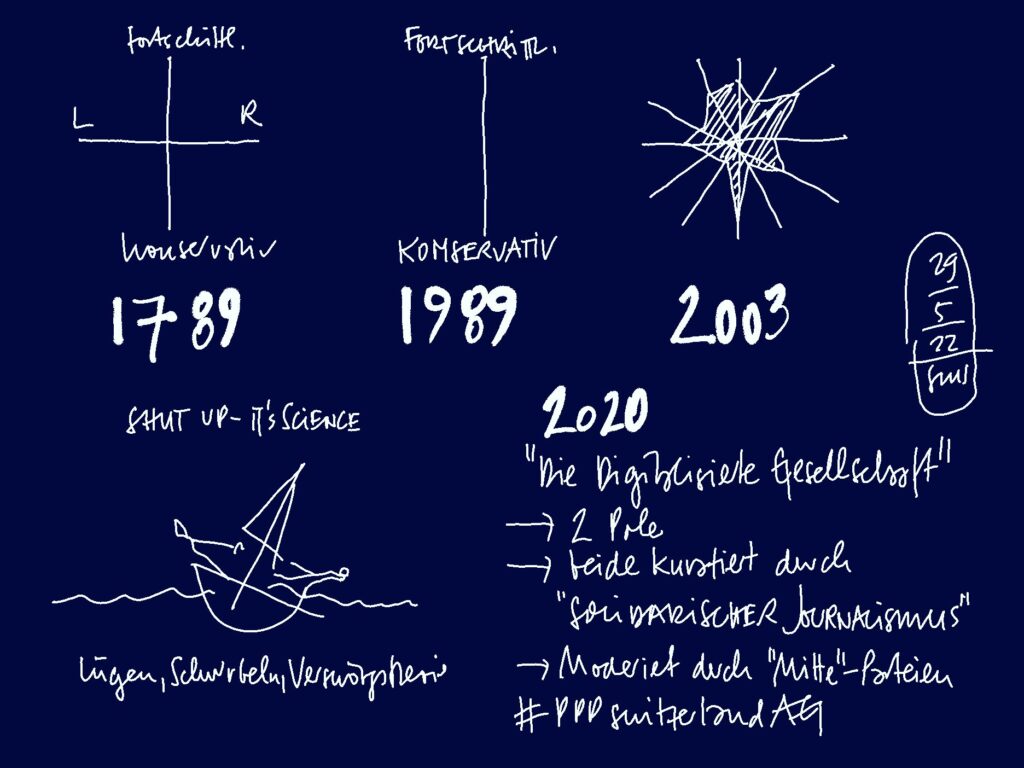 fortschrittl.
L R
konservativ
1789
FORTSCHRITTL.
KONSERVATIV
1989
2003
29
5
22
sms
SHUT UP - IT'S SCIENCE
Lügen, Schwurbeln,
2020
"Die Digitalisierte Gesellschaft"
→ 2 Pole
→ beide kuratiert durch
"SOLIDARISCHER JOURNALISMUS"
→ Moderiert durch "Mitte"-Parteien
# PPP switzerland AG